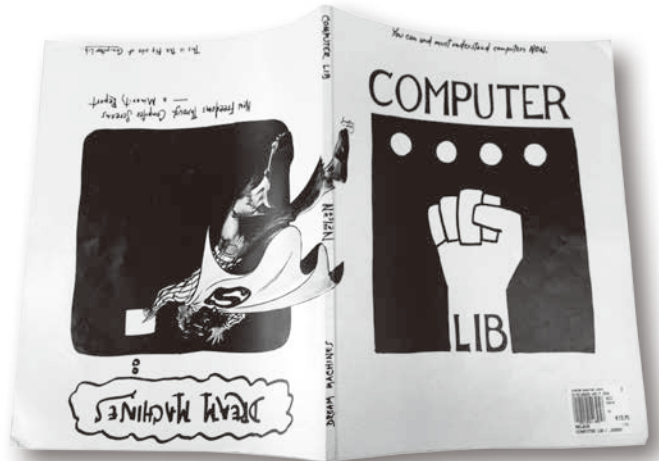 You can and must understand computers NOW.
COMPUTER
LIB
COMPUTER LIB
NELSON
DREAM MACHINES
DREAM MACHINES
New Freedoms Through Computer Screens
— a Minority Report
This is the flip side of Computer Lib
S